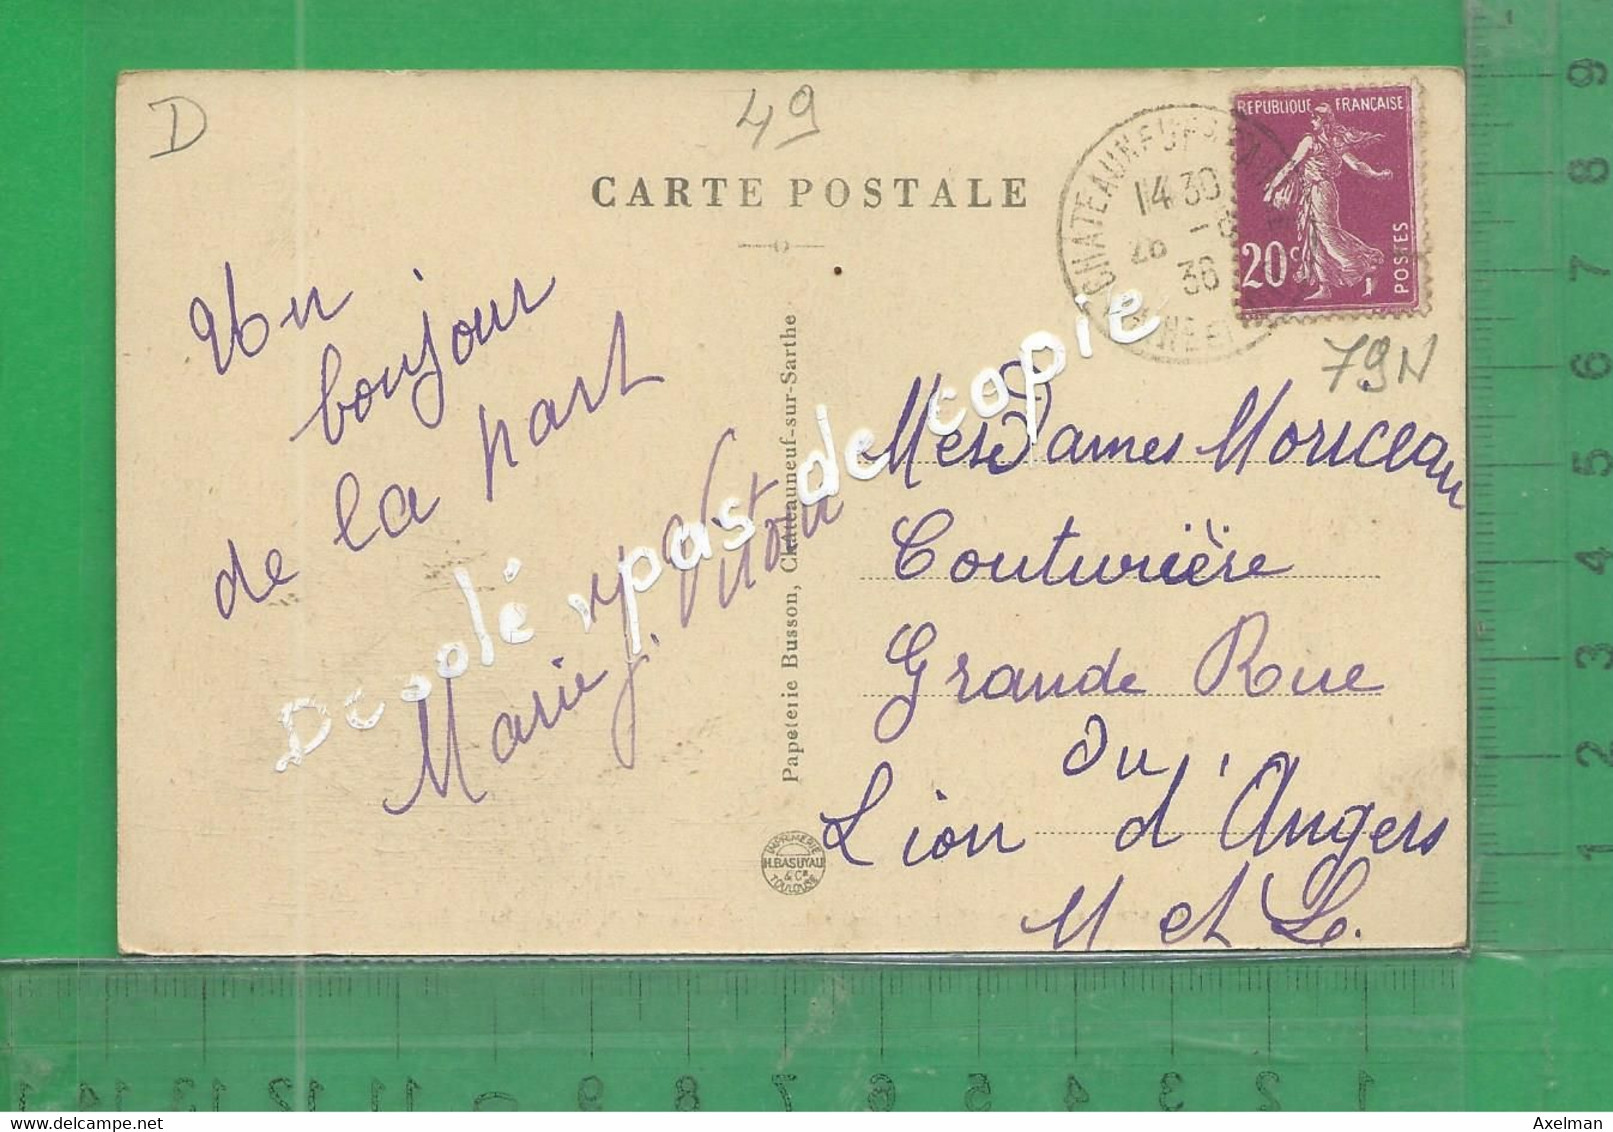 D
49
CARTE POSTALE
REPUBLIQUE FRANÇAISE
20c
POSTES
14 30
28 -8
36
79N
Un
bonjour
de la part
Marie J. Viton
Désolé, pas de copie
Papeterie Busson, Châteauneuf-sur-Sarthe
IMPRIMERIE
H. BASUYAU
& Cie
TOULOUSE
MesDames Moriceau
Couturière
Grande Rue
du
Lion d'Angers
M et L.
9
8
7
6
5
4
3
2
1
14 13 12 11 9 8 7 6 5 4 3 2 1
delcampe.net
Axelman